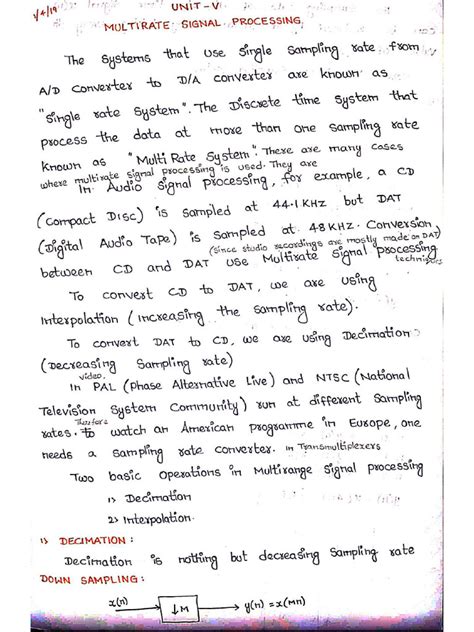 1/4/19
UNIT-V
MULTIRATE SIGNAL PROCESSING
The systems that use single sampling rate from
A/D converter to D/A converter are known as
"single rate system". The Discrete time system that
process the data at more than one sampling rate
known as "Multi Rate System". There are many cases
where multirate signal processing is used. They are
In Audio signal processing, for example, a CD
(Compact Disc) is sampled at 44.1 KHZ but DAT
(Digital Audio Tape) is sampled at 48 KHZ. Conversion
(since studio recordings are mostly made on DAT)
between CD and DAT use Multirate signal processing
techniques
To convert CD to DAT, we are using
Interpolation (increasing the sampling rate).
To convert DAT to CD, we are using Decimation
(Decreasing Sampling rate)
video,
In PAL (Phase Alternative Live) and NTSC (National
Television System Community) run at different Sampling
Therefore
rates. to watch an American programme in Europe, one
needs a sampling rate converter. in Transmultiplexers
Two basic operations in Multirange Signal processing
1) Decimation
2) Interpolation.
1) DECIMATION:
Decimation is nothing but decreasing Sampling rate
DOWN SAMPLING:
x(n) ↓M y(n) = x(Mn)